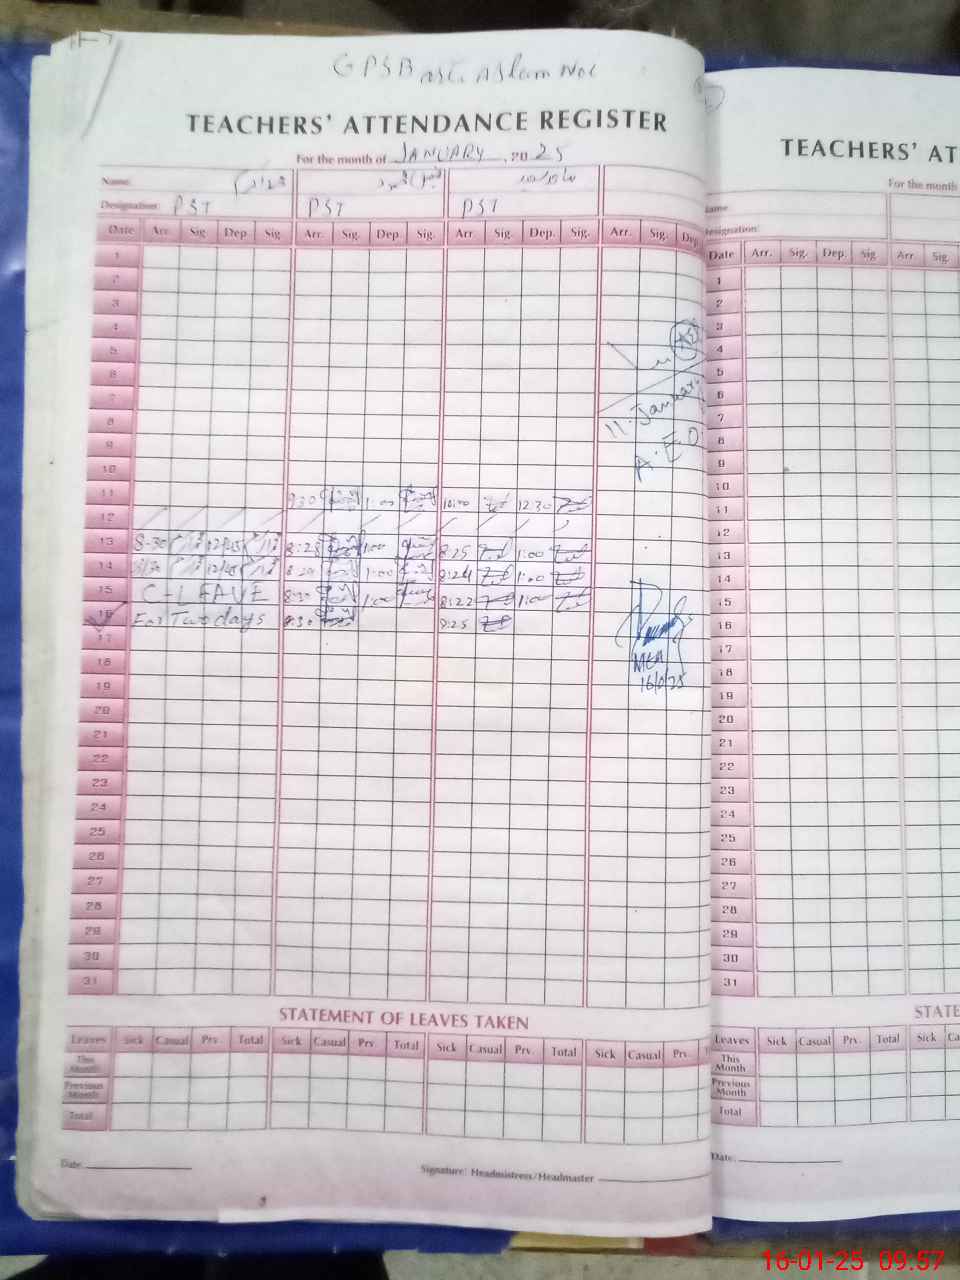 GPSB Aslam
TEACHERS' ATTENDANCE REGISTER
For the month of JANUARY, 2025
Name:
Designation: PST PST PST
Date Arr. Sig. Dep. Sig. Arr. Sig. Dep. Sig. Arr. Sig. Dep. Sig. Arr. Sig. Dep.
1
2
3
4
5
6
7
8
9
10
11 9:30 1:00 10:00 12:30
12
13 8-30 12/45 8:28 1:00 8:25 1:00
14 12/45 1:00 8:24 1:00
15 C-LEAVE 8:30 1:00 8:22 1:00
16 For Two days 8:30 8:25
17
18
19
20
21
22
23
24
25
26
27
28
29
30
31
11. January
A.E.O
MEA
STATEMENT OF LEAVES TAKEN
Leaves Sick Casual Prv. Total Sick Casual Prv. Total Sick Casual Prv. Total Sick Casual Prv.
This Month
Previous Month
Total
Date
Signature: Headmistress/Headmaster
TEACHERS' AT
For the month
Name
Designation:
Date Arr. Sig. Dep. Sig. Arr. Sig.
1
2
3
4
5
6
7
8
9
10
11
12
13
14
15
16
17
18
19
20
21
22
23
24
25
26
27
28
29
30
31
STATE
Leaves Sick Casual Prv. Total Sick Ca
This Month
Previous Month
Total
Date:
16-01-25 09:57